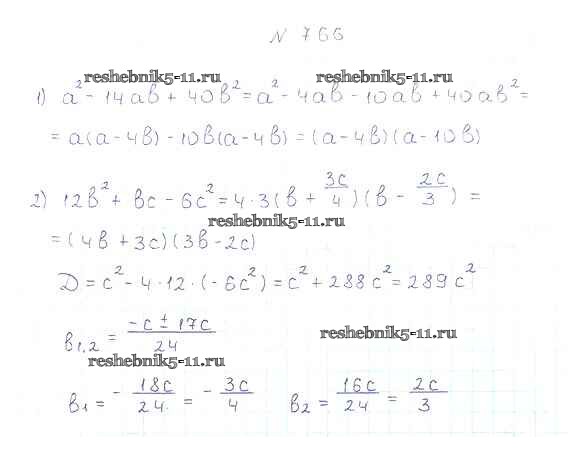 N 766
reshebnik5-11.ru reshebnik5-11.ru
1) a² - 14ab + 40b² = a² - 4ab - 10ab + 40ab² =
= a(a - 4b) - 10b(a - 4b) = (a - 4b)(a - 10b)
2) 12b² + bc - 6c² = 4·3(b + 3c/4)(b - 2c/3) =
reshebnik5-11.ru
= (4b + 3c)(3b - 2c)
D = c² - 4·12·(-6c²) = c² + 288c² = 289c²
b₁,₂ = (-c ± 17c)/24
reshebnik5-11.ru
reshebnik5-11.ru
b₁ = - 18c/24 = - 3c/4 b₂ = 16c/24 = 2c/3